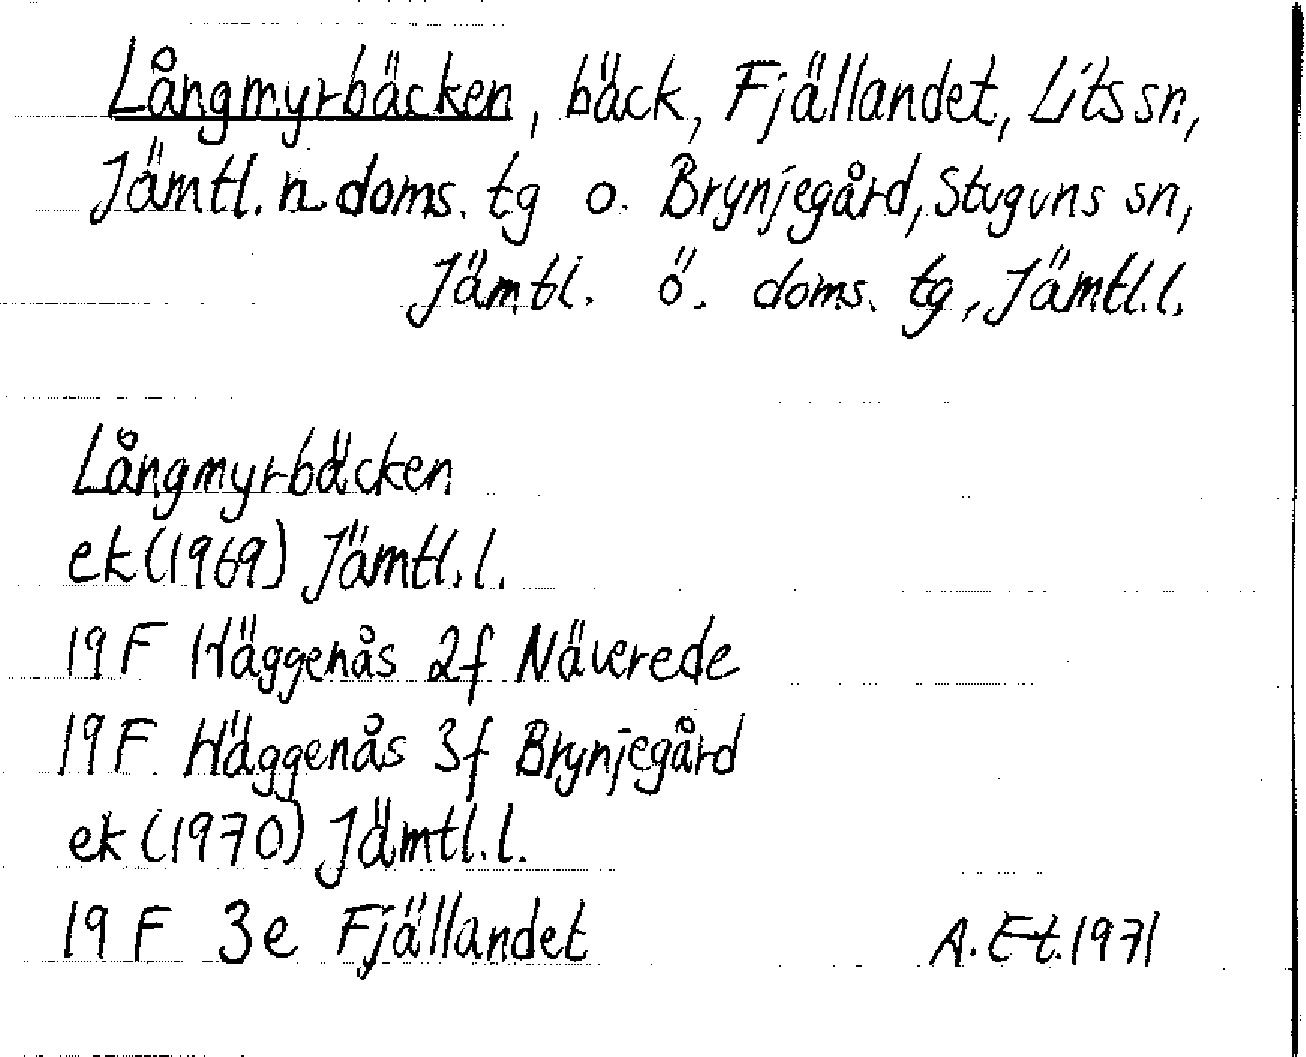 Långmyrbäcken, bäck, Fjällandet, Lits sn,
Jämtl. n doms. tg o. Brynjegård, Stuguns sn,
Jämtl. ö. doms. tg, Jämtl.l.
Långmyrbäcken
ek (1969) Jämtl.l.
19 F Häggenås 2f Näverede
19 F Häggenås 3f Brynjegård
ek (1970) Jämtl.l.
19 F 3e Fjällandet
A. Et. 1971